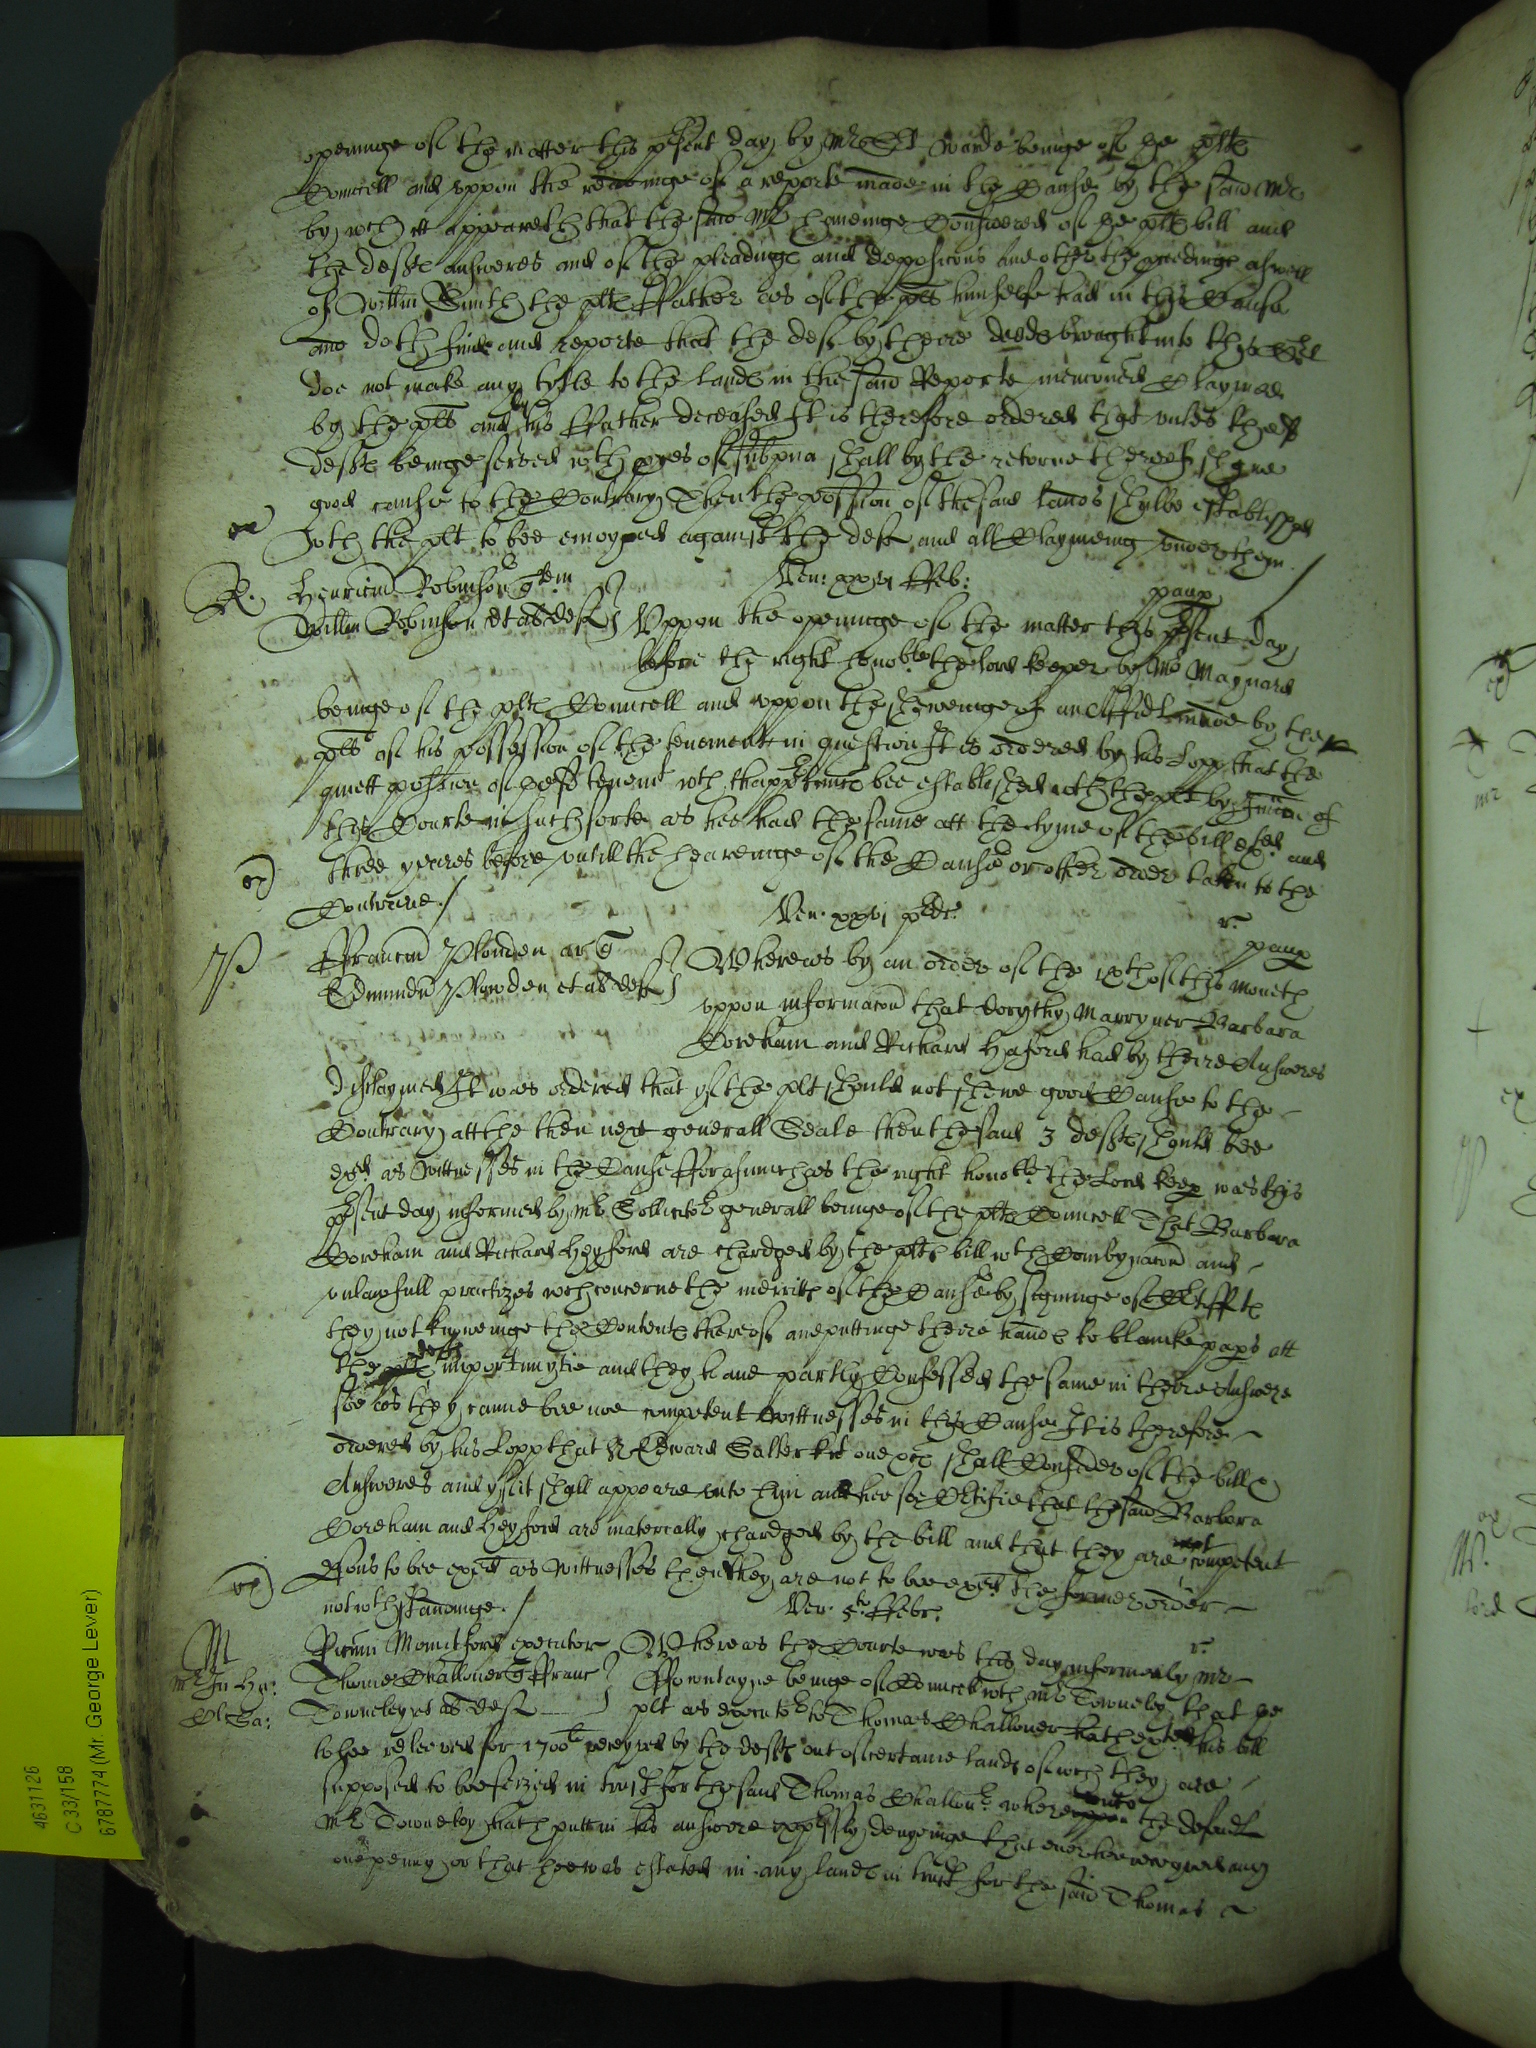 openinge of the matter this psent day by Mr warde beinge of the pltes
Councell and uppon the readinge of a reporte made in the Cause by the said Mr
by wch it appeareth that the said Mr haveinge Considered of the plts bill and
the deftes answeres and of the pleadinges and deposicons and other the pcedinges aswell
of Willm Smith the pltes ffather as of the plts himselfe had in this Cause
and doth finde and reporte that the deft by there deeds brought into this
doe not make any tytle to the landes in the said Reporte menconed Claymed
by the plts and his ffather deceased It is therefore ordered that unles the
deftes beinge served wth pces of subpna shall by the retorne thereof shewe
good cause to the Contrary Then the possion of the said lands shalbe established
wth the plt to bee enioyed against the deft and all Claymeing under them /
R. Henricum Robinson quer Ven: xxvi ffeb: paup
Willm Robinson et al deft } Uppon the openinge of the matter this psent day
before the right honoble the lord keeper by Mr Maynard
beinge of the pltes Councell and uppon the sheweinge of an Affidt made by the
plts of his possession of the tenement in question It is ordered by his Lopp that the
quiett possion of the sd tenemt wth thapptennces bee established wth the plt by Iniuncon of
this Courte in such sorte as hee had the same att the tyme of the bill exhed and
three yeares before untill the heareinge of the Cause or other order taken to the
Contrarie. / Ven. xxvi pdc.
r. paup
P ffrancm Plowden ar q } Whereas by an order of the 18th of this moneth
Edmundu Plowden et al deft } uppon informacon that Dorythy Marryner Barbara
Doreham and Richard Hayford had by theire Answeres
Disclaymed It was ordered that yf the plt should not shewe good Cause to the
Contrary att the then next generall Seale then the said 3 deftes should bee
exed as Wittnesses in the Cause fforasmuch as the right honoble the Lord keep was this
psent day informed by Mr Sollicitor generall beinge of the pltes Councell That Barbara
Doreham and Richard Heyford are chardged by the pltes bill wth Combynacon and
unlawfull practizes wch concerne the merrittes of the Cause by signinge of
they not knoweinge the Contentes thereof and puttinge there handes to blancke paps att
the deftes importunytie and they have partly Confessed the same in theire Answere
soe as they canne bee noe competent Wittnesses in this Cause It is therefore
ordered by his Lopp that Sr Edward Salter kt one &c shall Consider of the bill &
Answeres and yf it shall appeare unto him and hee soe Certifie that the said Barbara
Doreham and Heyford are materially chardged by the bill and that they are not competent
psons to bee exed as Wittnesses then they are not to bee exed the former order
notwthstandinge. / Ven. 5to ffebr.
r.
M Mountford executor Whereas the Courte was this day informed by Mr
Thome Challoner q ffranc } ffountayne beinge of Councell wth Mr Towneley that the
Towneley et al deft } plt as executor to Thomas Challoner hath exhted his bill
to bee releeved for 1700l receyved by the deftes out of certaine lands of wch they are
supposed to bee seized in trust for the said Thomas Challoner whereunto the defendt
Mr Towneley hath putt in his answere expressly denyeinge that ever hee receyved any
one penny or that hee was estated in any landes in trust for the said Thomas
4631126
C 33/158
6787774 (Mr. George Lever)